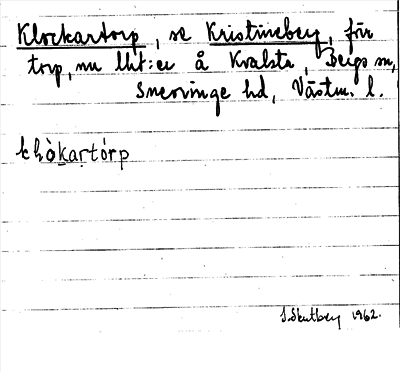 Klockartorp, se Kristineberg, förr
torp, nu lht:er å Kvalsta, Bergs sn,
Snevringe hd, Västm. l.
klòkaṛtórp
S. Skutberg 1962.